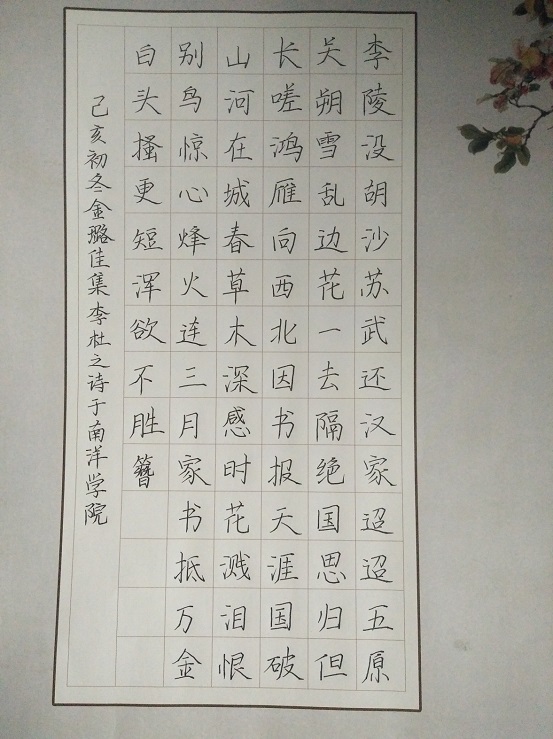 李陵没胡沙苏武还汉家迢迢五原
关朔雪乱边花一去隔绝国思归但
长嗟鸿雁向西北因书报天涯国破
山河在城春草木深感时花溅泪恨
别鸟惊心烽火连三月家书抵万金
白头搔更短浑欲不胜簪
己亥初冬金璐佳集李杜之诗于南洋学院